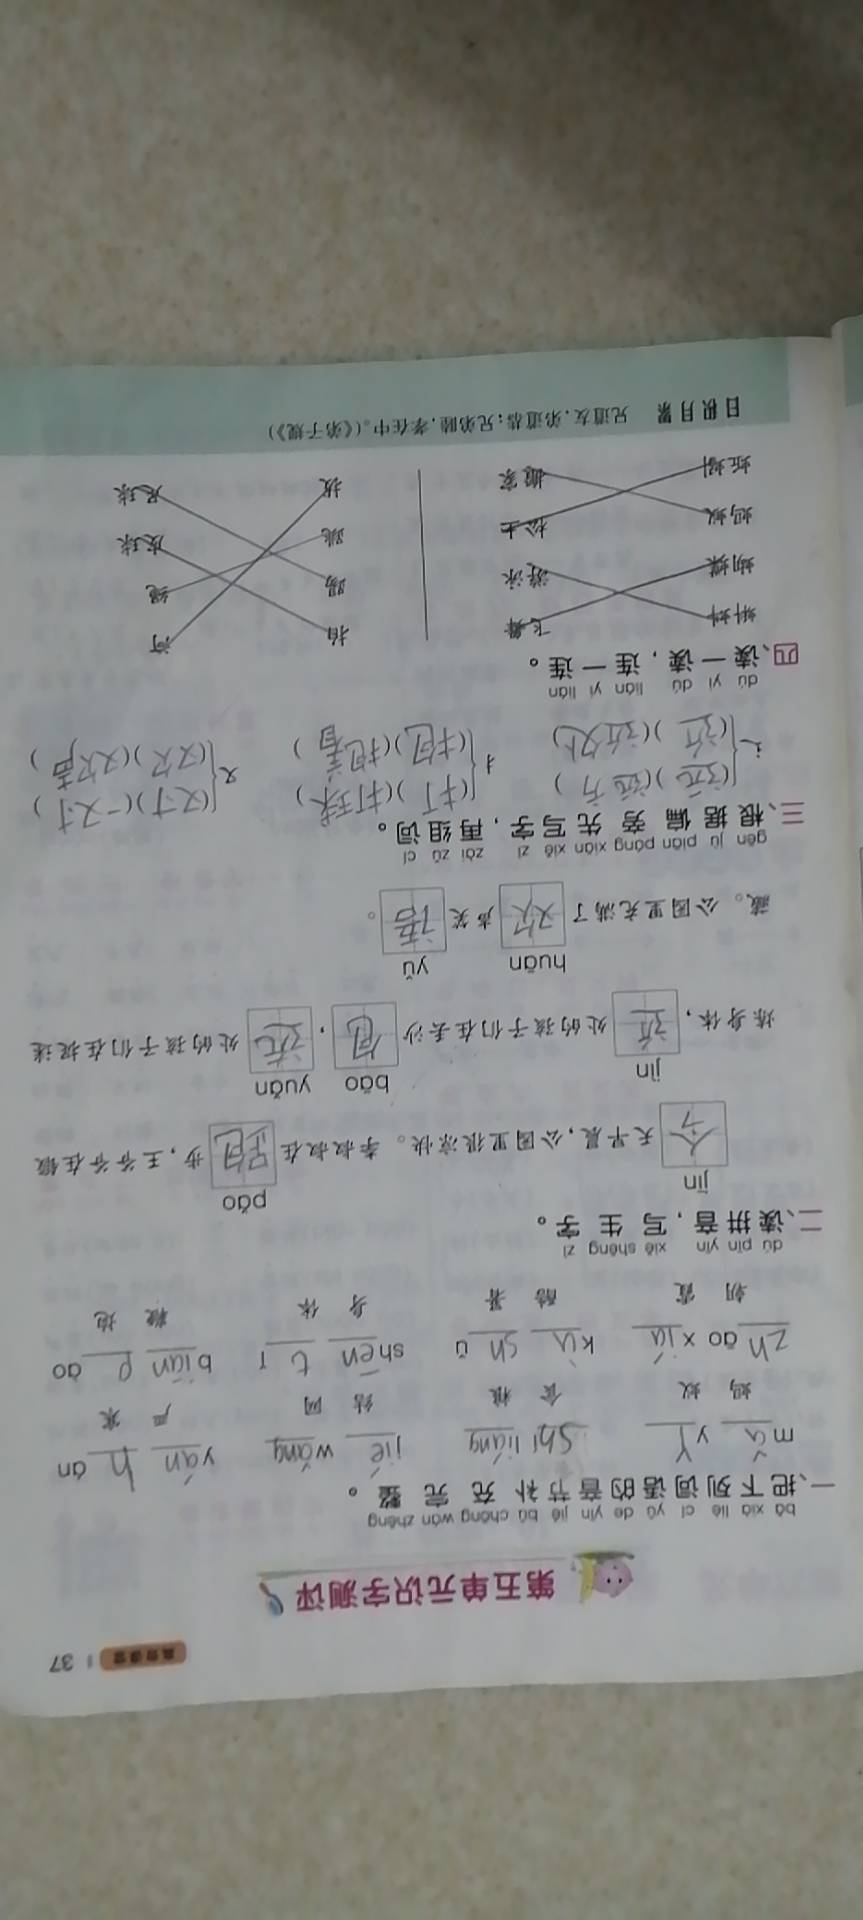 高效课堂 | 37
第五单元识字测评
bǎ xià liè cí yǔ de yīn jié bǔ chōng wán zhěng
一、把下列词语的音节补充完整。
mǎ yǐ shí liáng jié wǎng yán hán
蚂蚁 食粮 结网 严寒
zhāo xiá kù shǔ shēn tǐ biān pào
朝霞 酷暑 身体 鞭炮
dú pīn yīn xiě shēng zì
二、读拼音,写生字。
jīn pǎo
今天早晨,公园里很凉快。李叔叔在跑步,王爷爷在锻
jìn bāo yuǎn
炼身体,近处的孩子们在丢沙包,远处的孩子们在捉迷
huān yǔ
藏。公园里充满了欢声笑语。
gēn jù piān páng xiān xiě zì zài zǔ cí
三、根据偏旁先写字,再组词。
辶 (远)(远方) 扌 (打)(打球) 又 (对)(一对)
(近)(近处) (把)(把着) (欢)(欢声)
dú yì dú lián yì lián
四、读一读,连一连。
蝌蚪 飞舞 拍 河
蝴蝶 游泳 踢 绳
蚂蚁 松土 跳 皮球
蚯蚓 搬家 拔 足球
日积月累 兄道友,弟道恭;兄弟睦,孝在中。(《弟子规》)